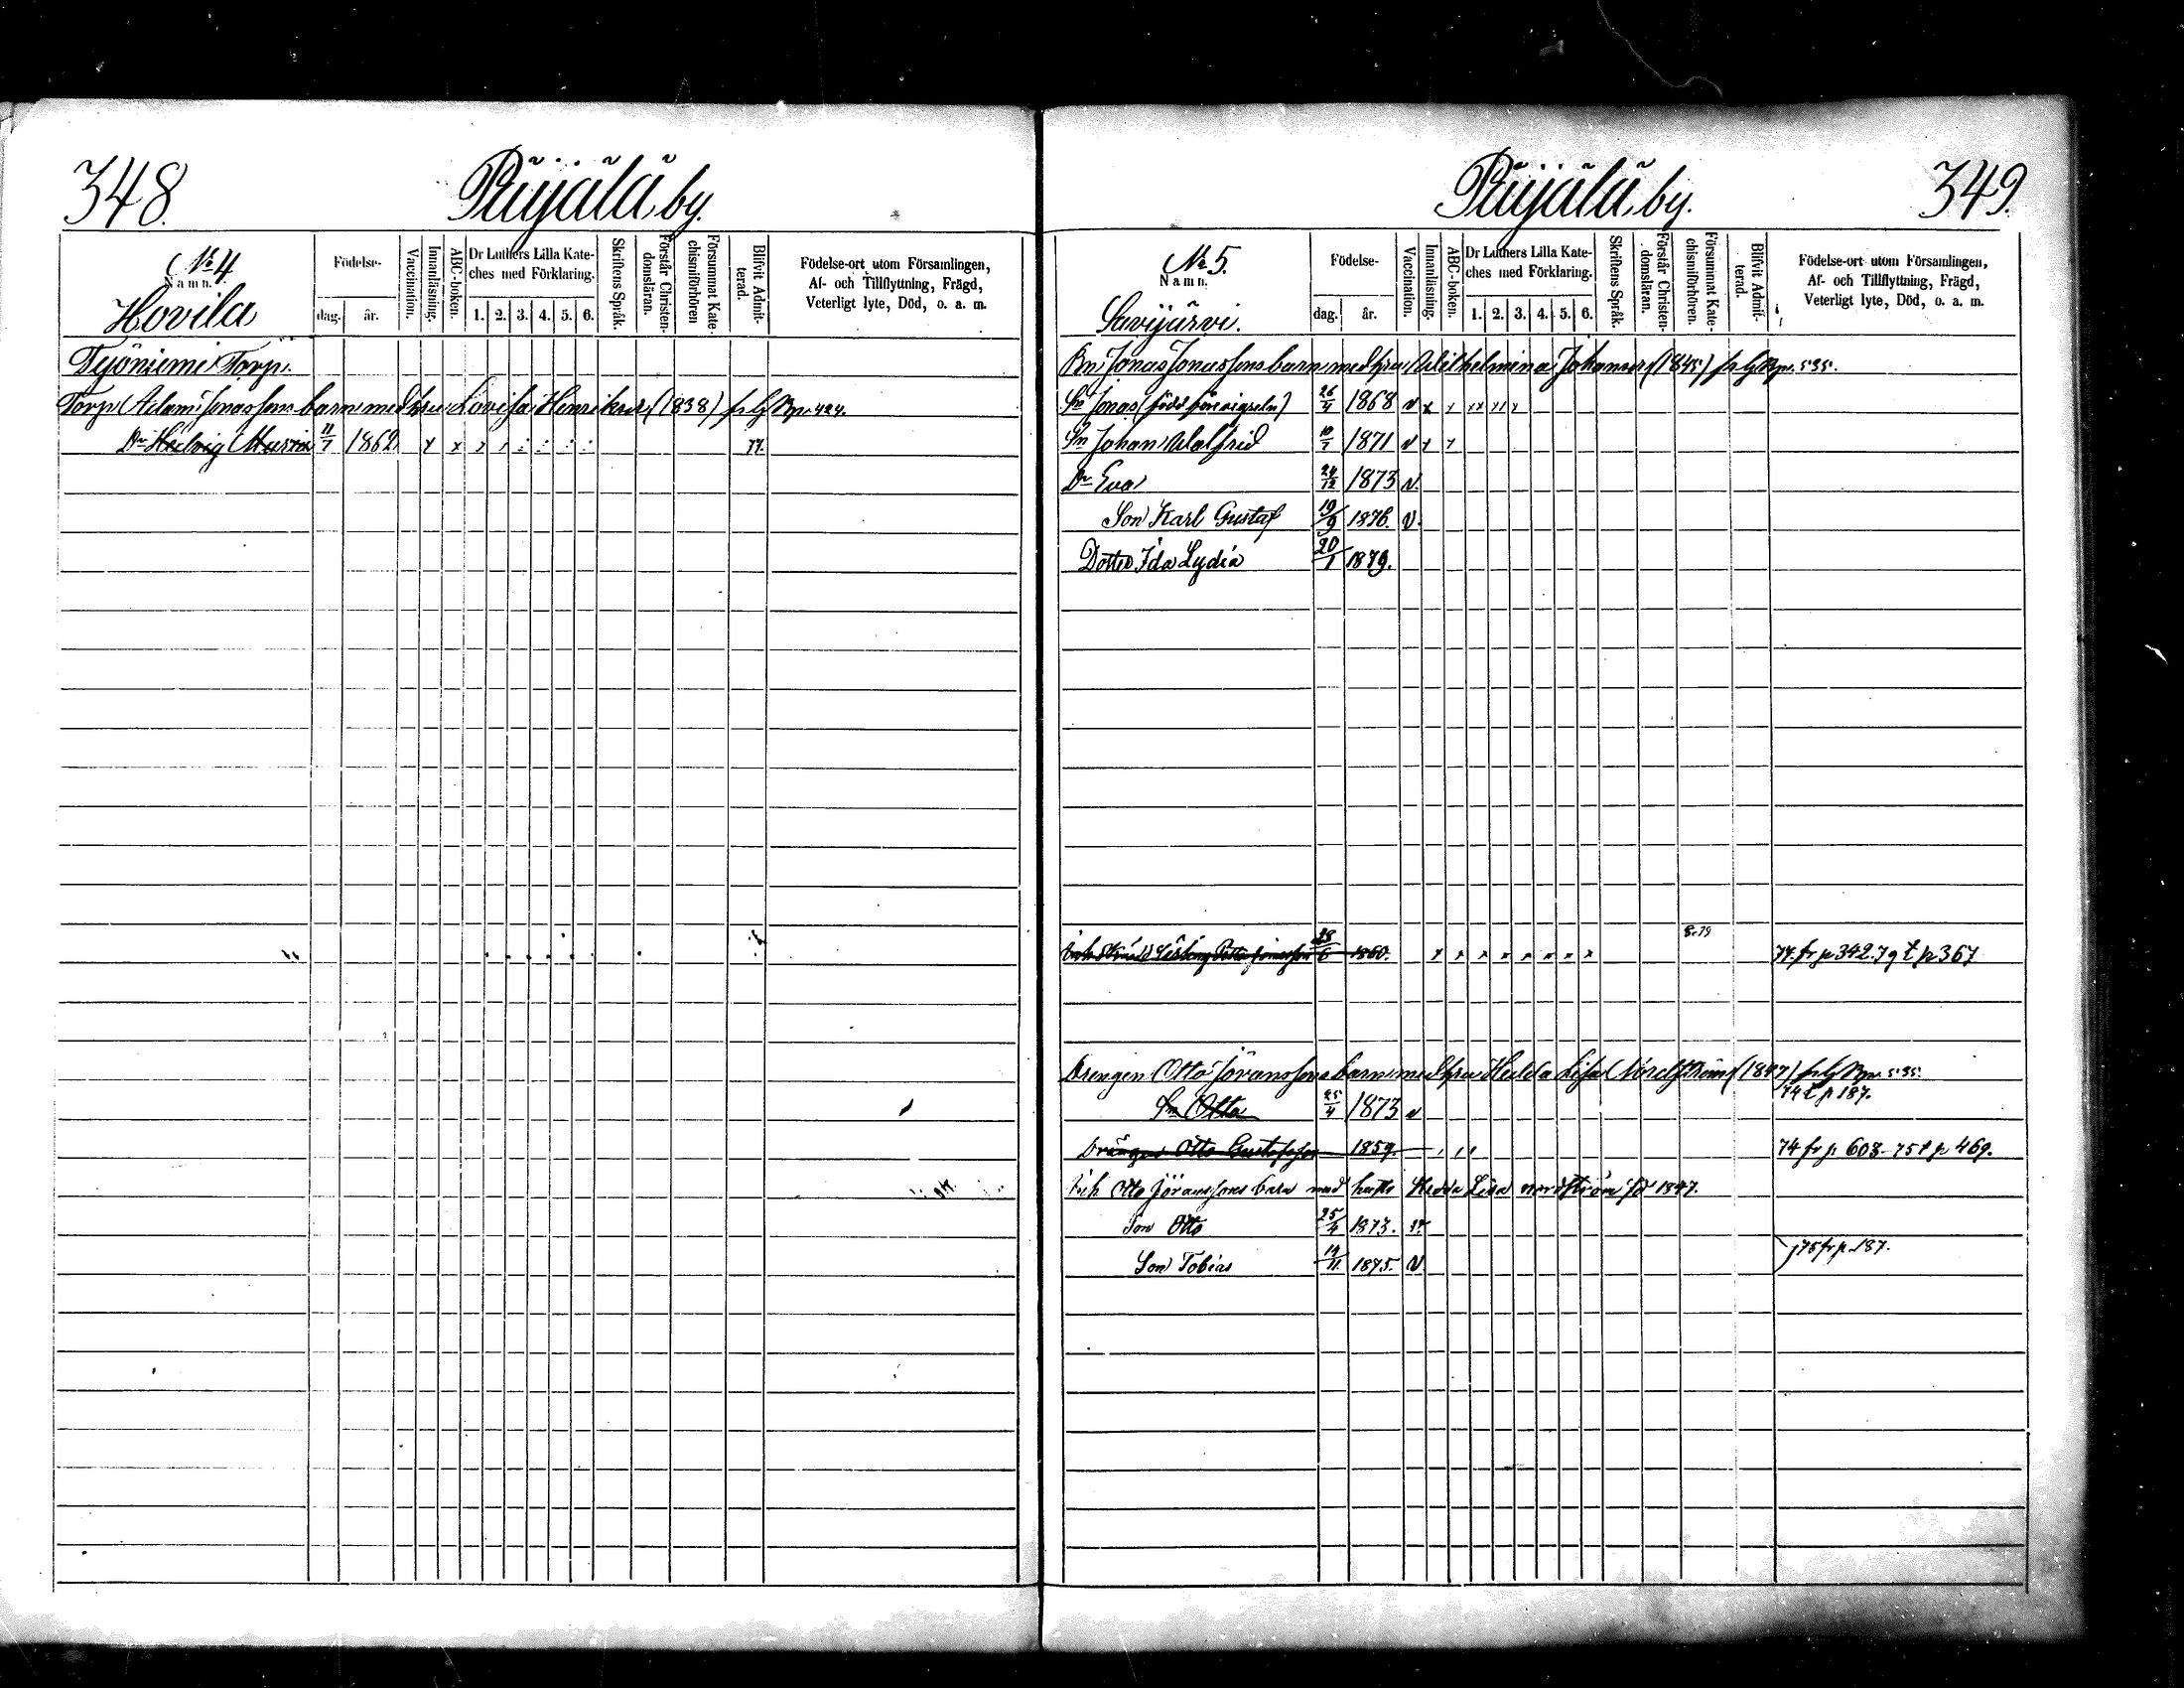 348.
Päijälä by.
No 4
Namn.
Hovila
Födelse-
dag.
år.
Vaccination.
Innanläsning.
ABC-boken.
Dr Luthers Lilla Kate-
ches med Förklaring.
1. 2. 3. 4. 5. 6.
Skriftens Språk.
Förstår Christen-
domsläran.
Försummat Kate-
chismiförhören
Blifvit Admit-
terad.
Födelse-ort utom Församlingen,
Af- och Tillflyttning, Frägd,
Veterligt lyte, Död, o. a. m.
Työniemi Torp.
Torp Adam Jonassons barn med hru Lovisa Henriksd. (1838) 424.
Dr Hedvig Maria 11/7 1862 x x 77.
Päijälä by.
349.
No 5.
Namn.
Savijärvi.
Födelse-
dag.
år.
Vaccination.
Innanläsning.
ABC-boken.
Dr Luthers Lilla Kate-
ches med Förklaring.
1. 2. 3. 4. 5. 6.
Skriftens Språk.
Förstår Christen-
domsläran.
Försummat Kate-
chismiförhören.
Blifvit Admit-
terad.
Födelse-ort utom Församlingen,
Af- och Tillflyttning, Frägd,
Veterligt lyte, Död, o. a. m.
Bn Jonas Jonassons barn med hru Wilhelmina Johansd (1845) 535.
Sn Jonas (född före vigseln) 26/4 1868 v x x xx x x x
Sn Johan Walfrid 10/7 1871 v x x
Dr Eva 24/12 1873 v.
Son Karl Gustaf 19/9 1876. v.
Dotter Ida Lydia 20/1 1879.
8.79
1860. x x x x x x x x 77. fr p 342. 79 t p 367
Drengen Otto Göranssons barn med hru Hedda Lisa Nordström (1847) 535.
Sn Otto 25/4 1873 v 74 t p 187.
Drängen Otto Gustafsson 1859. 74 fr p. 608 - 75 t p 469.
Otto Göranssons barn med hustr Hedda Lisa Nordström fd 1847.
Son Otto 25/4 1873.
Son Tobias 19/11 1875. v 75 fr p. 187.